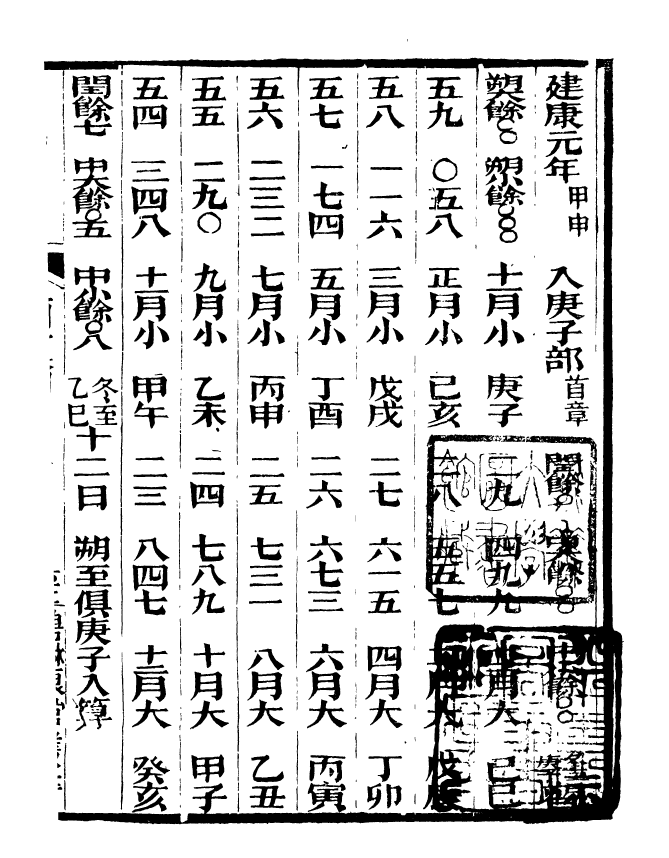 建康元年甲申 入庚子部首章 閏餘〇 中大餘〇〇 中小餘〇〇
朔大餘〇〇 朔小餘〇〇〇 十一月小 庚子 二九 四九九 十二月大 己巳
五九 〇五八 正月小 己亥 二八 五五七 二月大 戊辰
五八 一一六 三月小 戊戌 二七 六一五 四月大 丁卯
五七 一七四 五月小 丁酉 二六 六七三 六月大 丙寅
五六 二三二 七月小 丙申 二五 七三一 八月大 乙丑
五五 二九〇 九月小 乙未 二四 七八九 十月大 甲子
五四 三四八 十一月小 甲午 二三 八四七 十二月大 癸亥
閏餘七 中大餘〇五 中小餘〇八 冬至乙巳十二日 朔至俱庚子入算